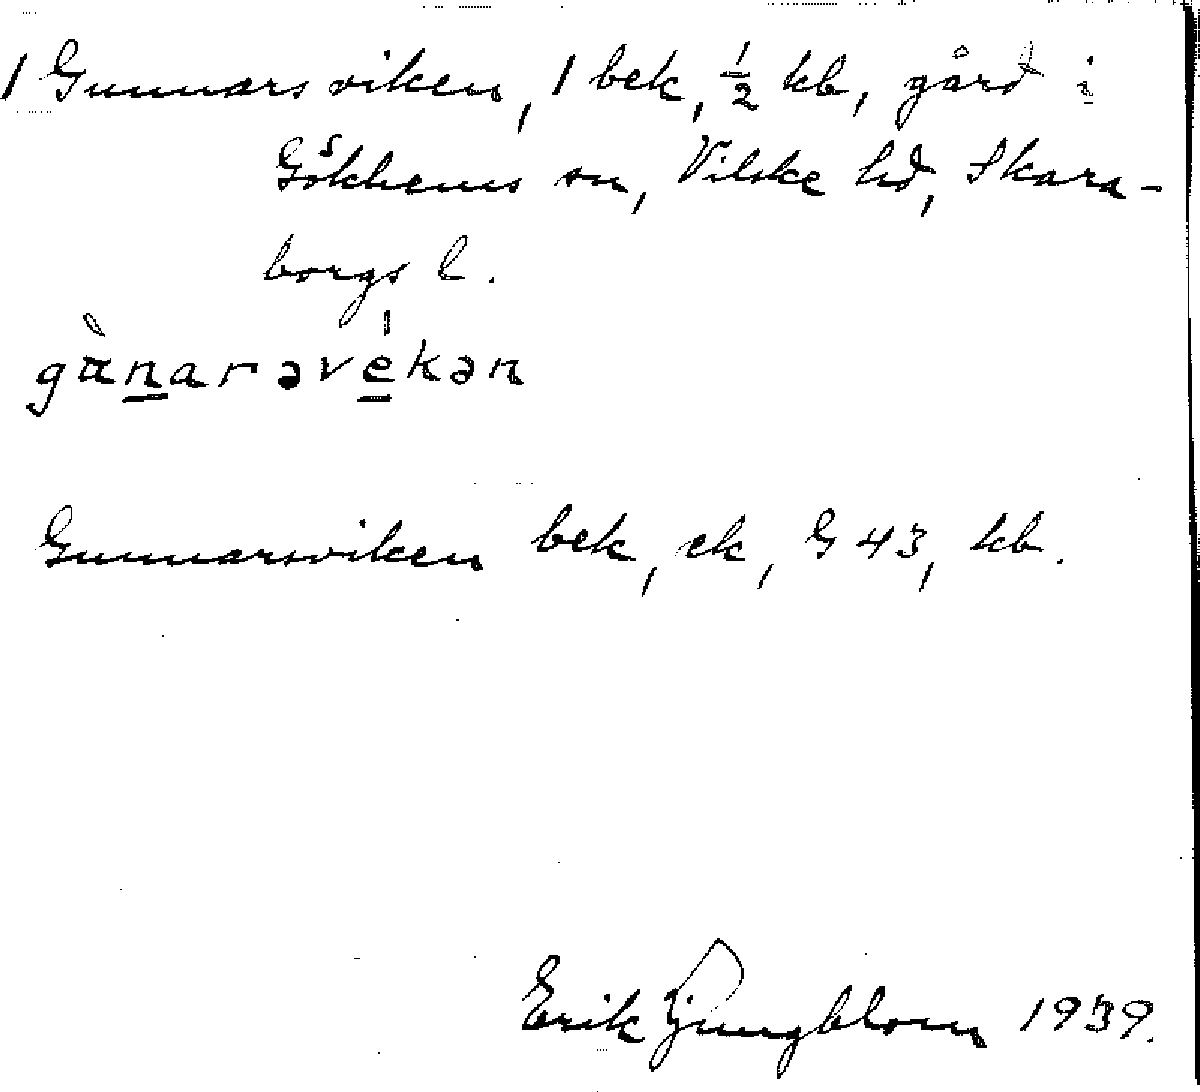 1 Gunnarsviken, 1 bek, ½ kb, gård i
Gökhems sn, Vilske hd, Skara-
borgs l.
gànaravékan
Gunnarsviken bek, ek, G 43, kb.
Erik Ljungblom 1939.